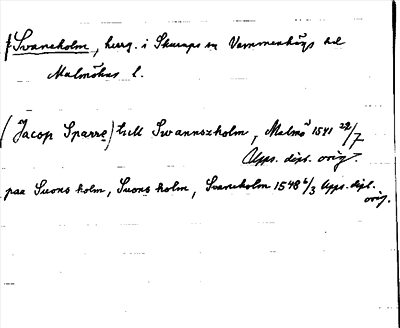 Svaneholm, herrg. i Skurups sn Vemmenhögs hd
Malmöhus l.
(Jacop Sparre) till Swannszholm, Malmö 1541 22/7
Upps. dipl. orig.
paa Suons holm, Suons holm, Svaneholm 1548 6/3 Upps. dipl.
orig.